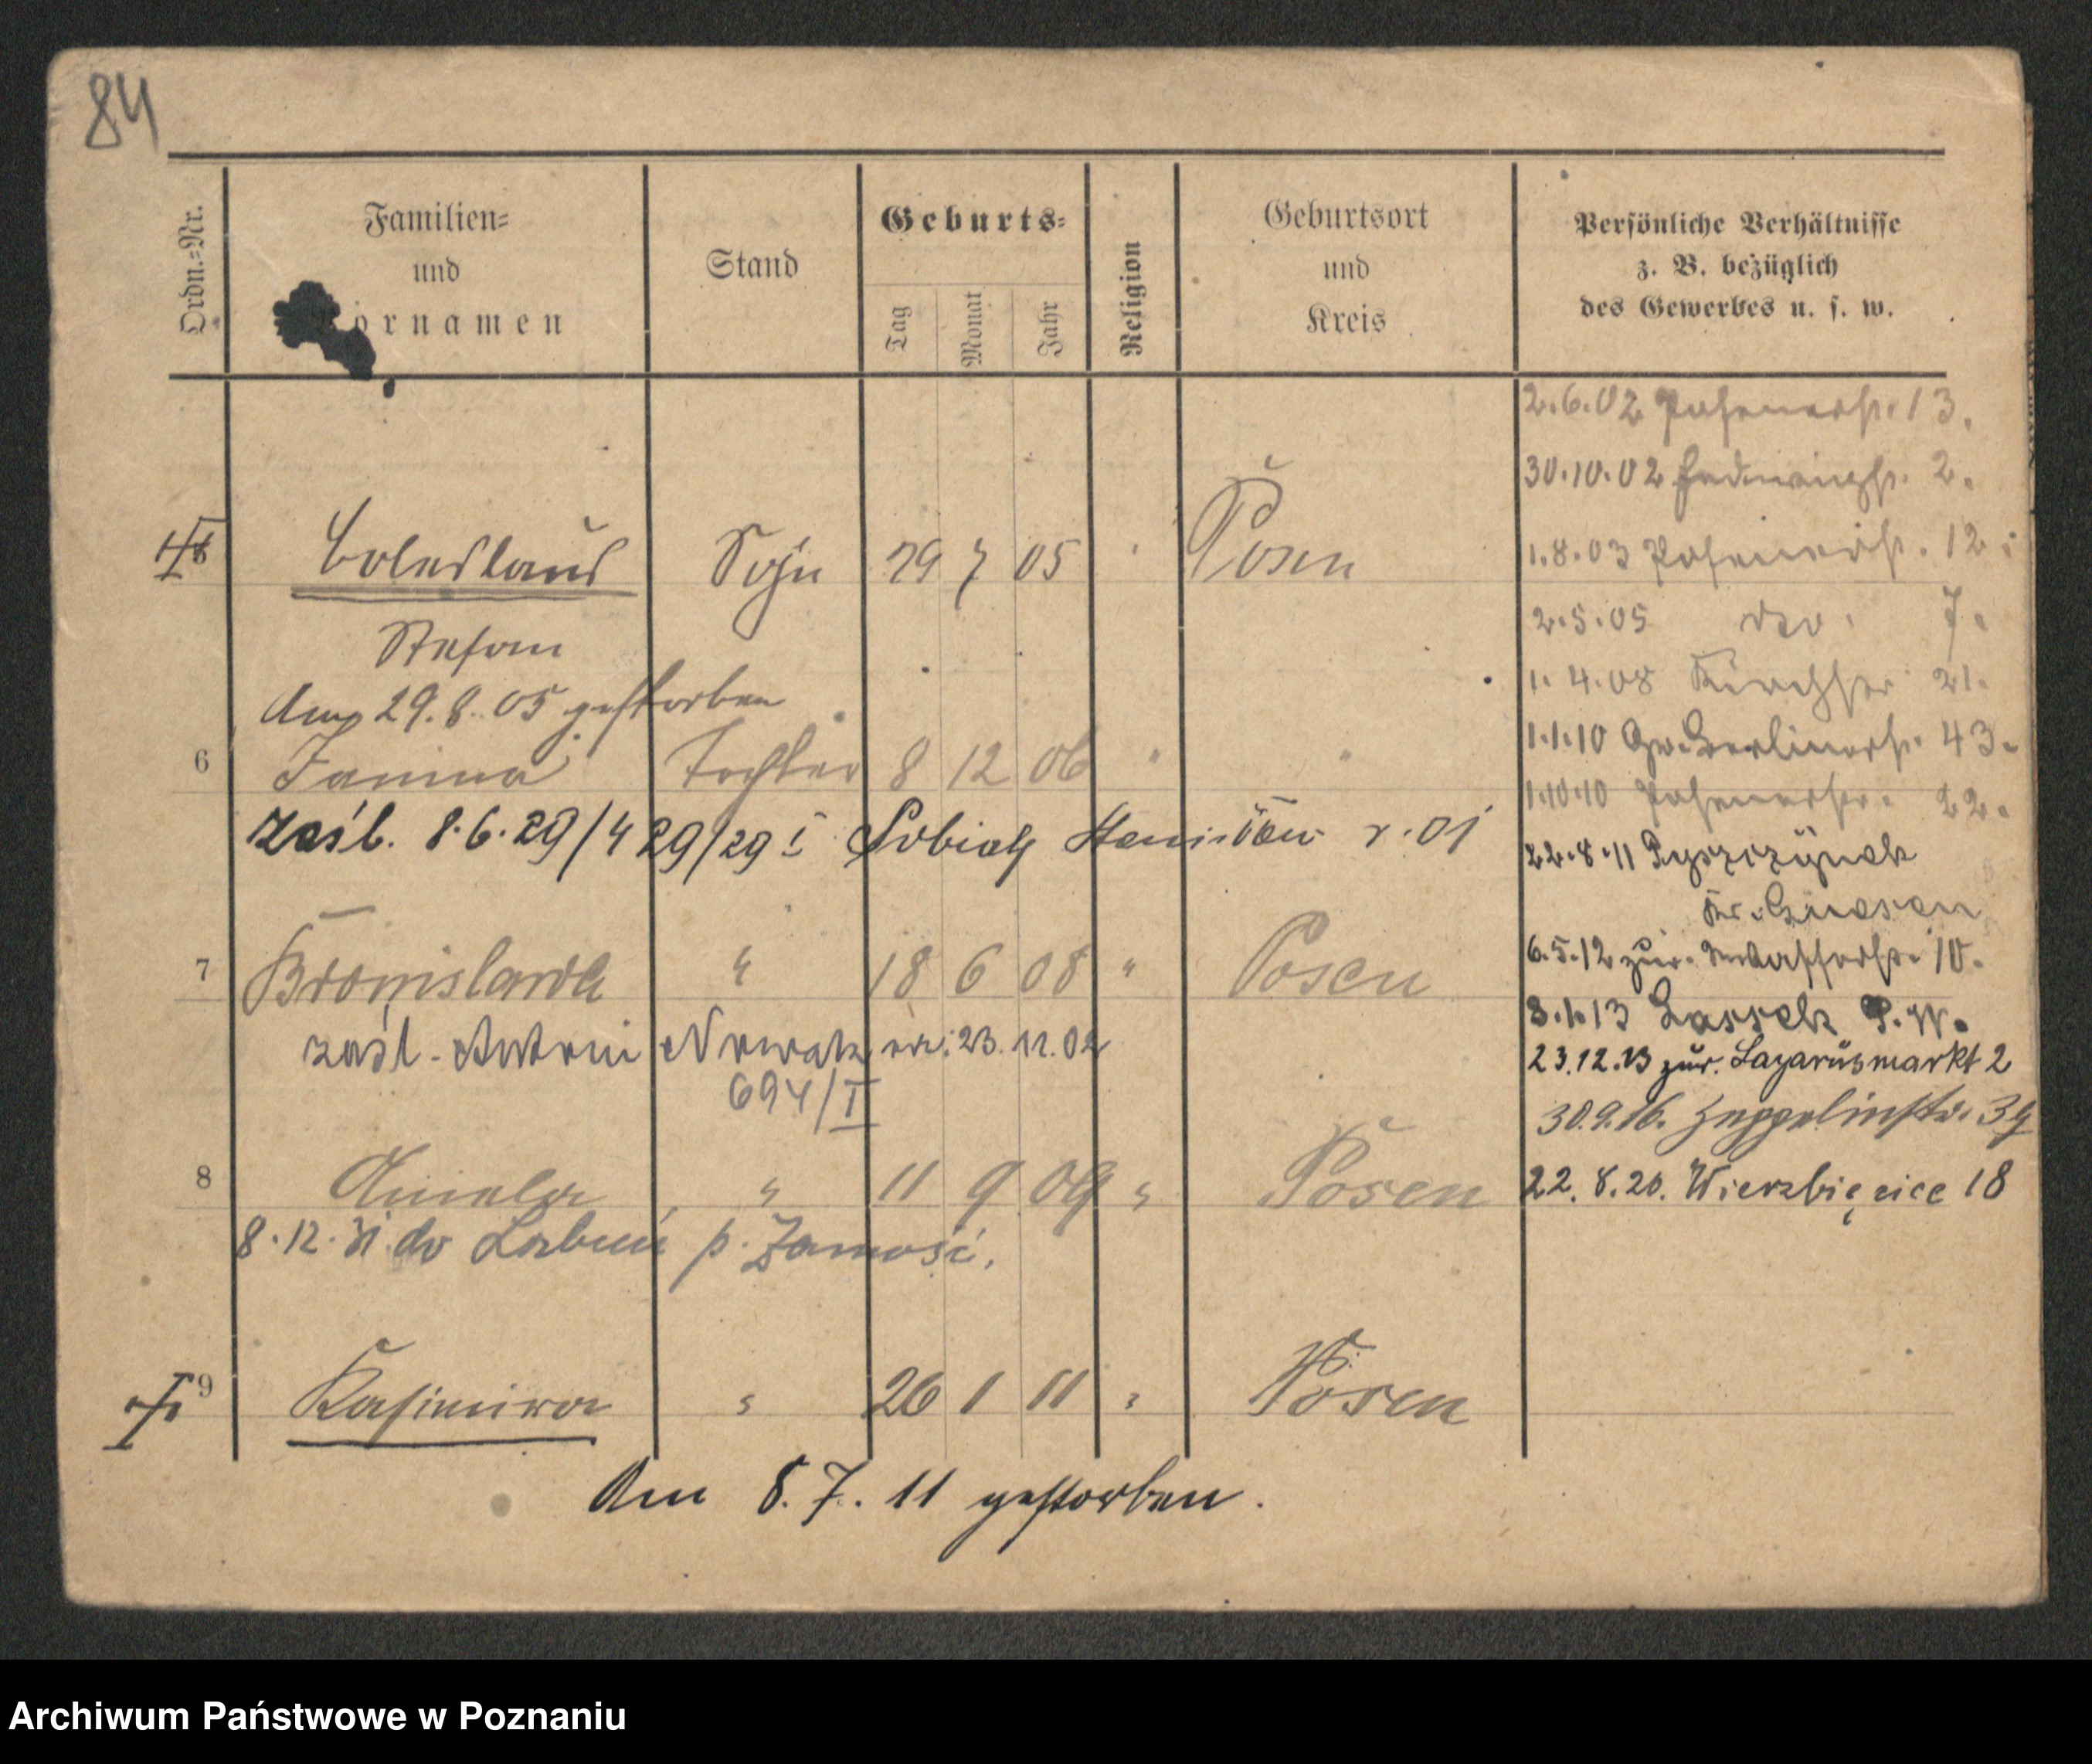 84
Ordn.-Nr.
Familien-
und
Vornamen
Stand
Geburts-
Tag
Monat
Jahr
Religion
Geburtsort
und
Kreis
Persönliche Verhältnisse
z. B. bezüglich
des Gewerbes u. s. w.
2.6.02 Posenerstr. 13.
30.10.02 Hedwigstr. 2.
1.8.03 Posenerstr. 12
2.5.05 dto. 7.
1.4.08 Kirchstr 21.
1.1.10 Gr. Berlinerstr. 43.
1.10.10 Posenerstr. 22.
22.8.11 Pyszczynek
Kr. Gnesen
6.5.12 zur. 10.
3.1.13 Lassek P.W.
23.12.13 zur. Lazarusmarkt 2
30.9.16. Zeppelinstr. 39
22.8.20. Wierzbięcice 18
Boleslaus Sohn 29 7 05 Posen
Stefan
Am 29.8.05 gestorben
6 Janina Tochter 8 12 06 " "
zaśl. 8.6.29/429/29 I Sobiak Stanisław r. 01
7 Bronislawa " 18 6 08 " Posen
zaśl. Antoni Nowak ur. 23.11.02
694/I
8 Aniela " 11 9 09 " Posen
8.12.31 do Łabuń p. Zamość.
9 Kasimira " 26 1 11 " Posen
Am 8.7.11 gestorben.
Archiwum Państwowe w Poznaniu